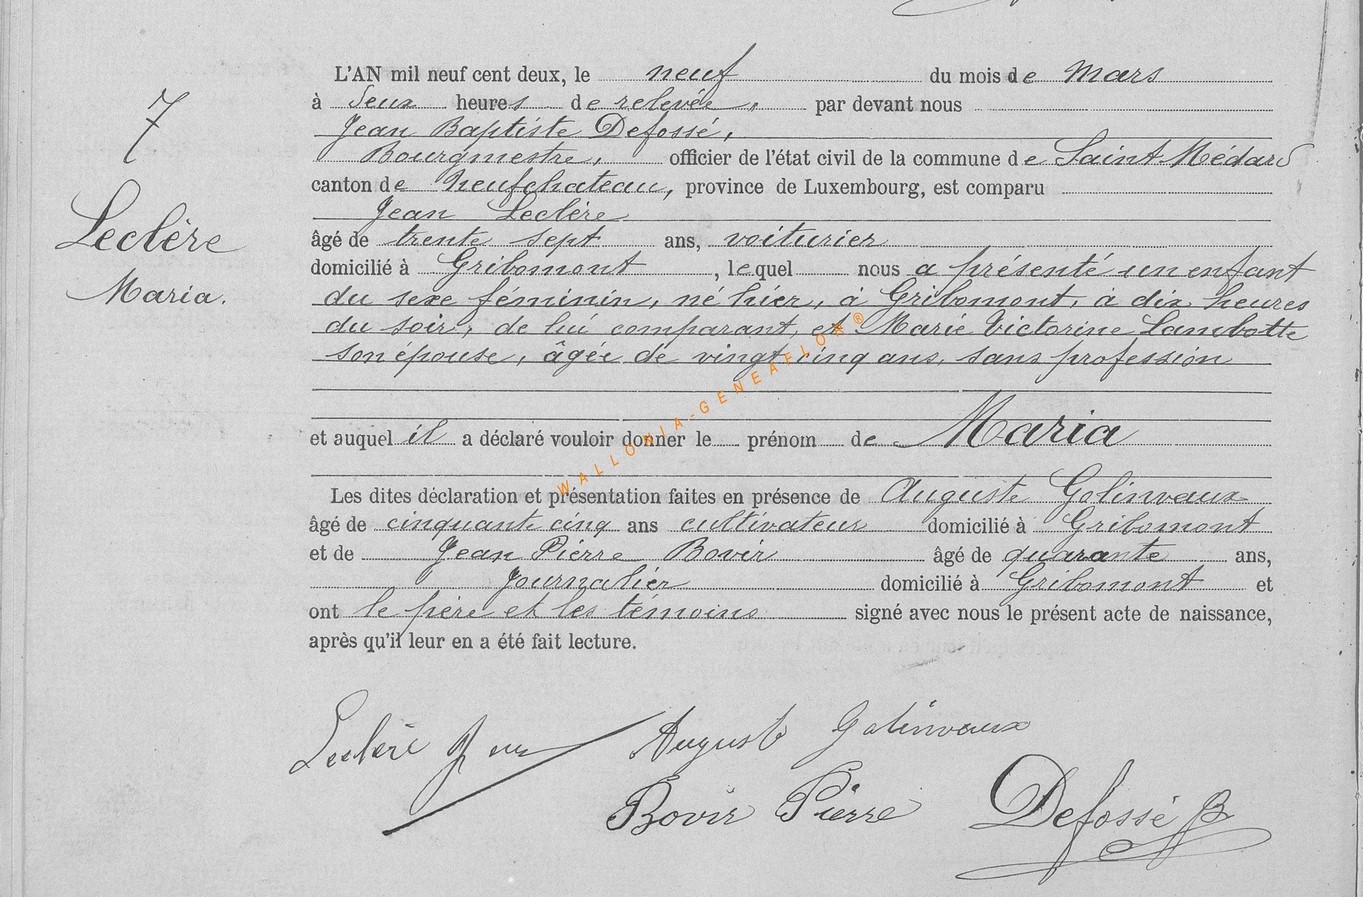 L'AN mil neuf cent deux, le neuf du mois de mars
à deux heures de relevée, par devant nous
Jean Baptiste Defossé,
Bourgmestre, officier de l'état civil de la commune de Saint-Médard
canton de Neufchateau, province de Luxembourg, est comparu
Jean Leclère
âgé de trente sept ans, voiturier
domicilié à Gribomont, lequel nous a présenté un enfant
du sexe féminin, né hier, à Gribomont, à dix heures
du soir, de lui comparant, et Marie Victorine Lambotte
son épouse, âgée de vingt cinq ans, sans profession
et auquel il a déclaré vouloir donner le prénom de Maria
Les dites déclaration et présentation faites en présence de Auguste Golinvaux
âgé de cinquante cinq ans cultivateur domicilié à Gribomont
et de Jean Pierre Bovir âgé de quarante ans,
Journalier domicilié à Gribomont et
ont le père et les témoins signé avec nous le présent acte de naissance,
après qu'il leur en a été fait lecture.
7
Leclère
Maria.
Leclère Jean Auguste Golinvaux
Bovir Pierre Defossé JB
WALLONIA-GENEAFLOR®